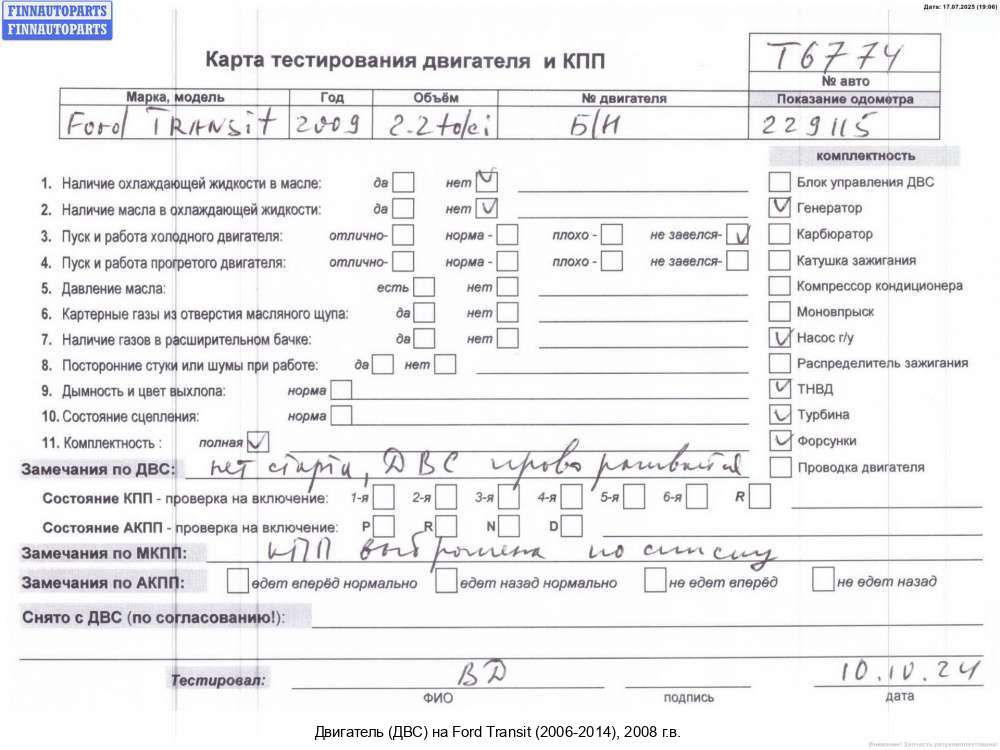 FINNAUTOPARTS
FINNAUTOPARTS
Дата: 17.07.2025 (19:06)
Карта тестирования двигателя и КПП
T6774
№ авто
Марка, модель Год Объём № двигателя Показание одометра
Ford TRANSit 2009 2.2 tdci Б/Н 229115
комплектность
1. Наличие охлаждающей жидкости в масле: да нет
Блок управления ДВС
2. Наличие масла в охлаждающей жидкости: да нет
Генератор
3. Пуск и работа холодного двигателя: отлично- норма - плохо - не завелся-
Карбюратор
4. Пуск и работа прогретого двигателя: отлично- норма - плохо - не завелся-
Катушка зажигания
5. Давление масла: есть нет
Компрессор кондиционера
6. Картерные газы из отверстия масляного щупа: да нет
Моновпрыск
7. Наличие газов в расширительном бачке: да нет
Насос г/у
8. Посторонние стуки или шумы при работе: да нет
Распределитель зажигания
9. Дымность и цвет выхлопа: норма
ТНВД
10. Состояние сцепления: норма
Турбина
11. Комплектность : полная
Форсунки
Замечания по ДВС: нет старта, ДВС проворачивается
Проводка двигателя
Состояние КПП - проверка на включение: 1-я 2-я 3-я 4-я 5-я 6-я R
Состояние АКПП - проверка на включение: P R N D
Замечания по МКПП: КПП выброшена по списку
Замечания по АКПП: едет вперёд нормально едет назад нормально не едет вперёд не едет назад
Снято с ДВС (по согласованию!):
Тестировал: ВД 10.10.24
ФИО подпись дата
Двигатель (ДВС) на Ford Transit (2006-2014), 2008 г.в.
Внимание! Запчасть разукомплектована!